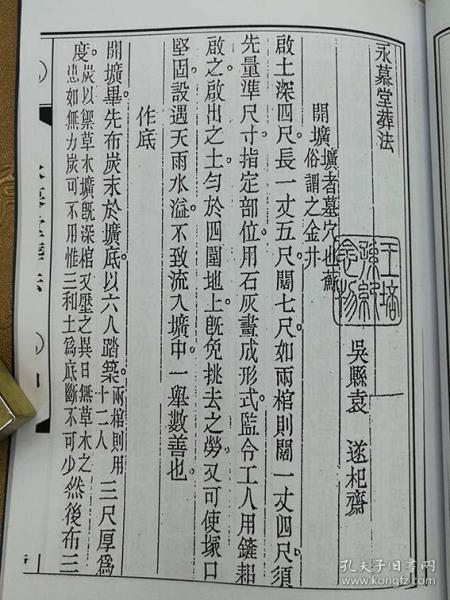 永慕堂葬法
吳縣袁　遂杞齋
開壙壙者墓穴也蘇俗謂之金井
啟土深四尺長一丈五尺闊七尺如兩棺則闊一丈四尺須
先量準尺寸指定部位用石灰畫成形式監令工人用鏟耜
啟之啟出之土勻於四圍地上旣免挑去之勞又可使塚口
堅固設遇天雨水溢不致流入壙中一舉數善也
作底
開壙畢先布炭末於壙底以六人踏築兩棺則用十二人三尺厚爲
度炭以禦草木壙旣深棺又壓之異日無草木之患如無力炭可不用惟三和土爲底斷不可少然後布三
孔夫子旧书网
www.kongfz.com